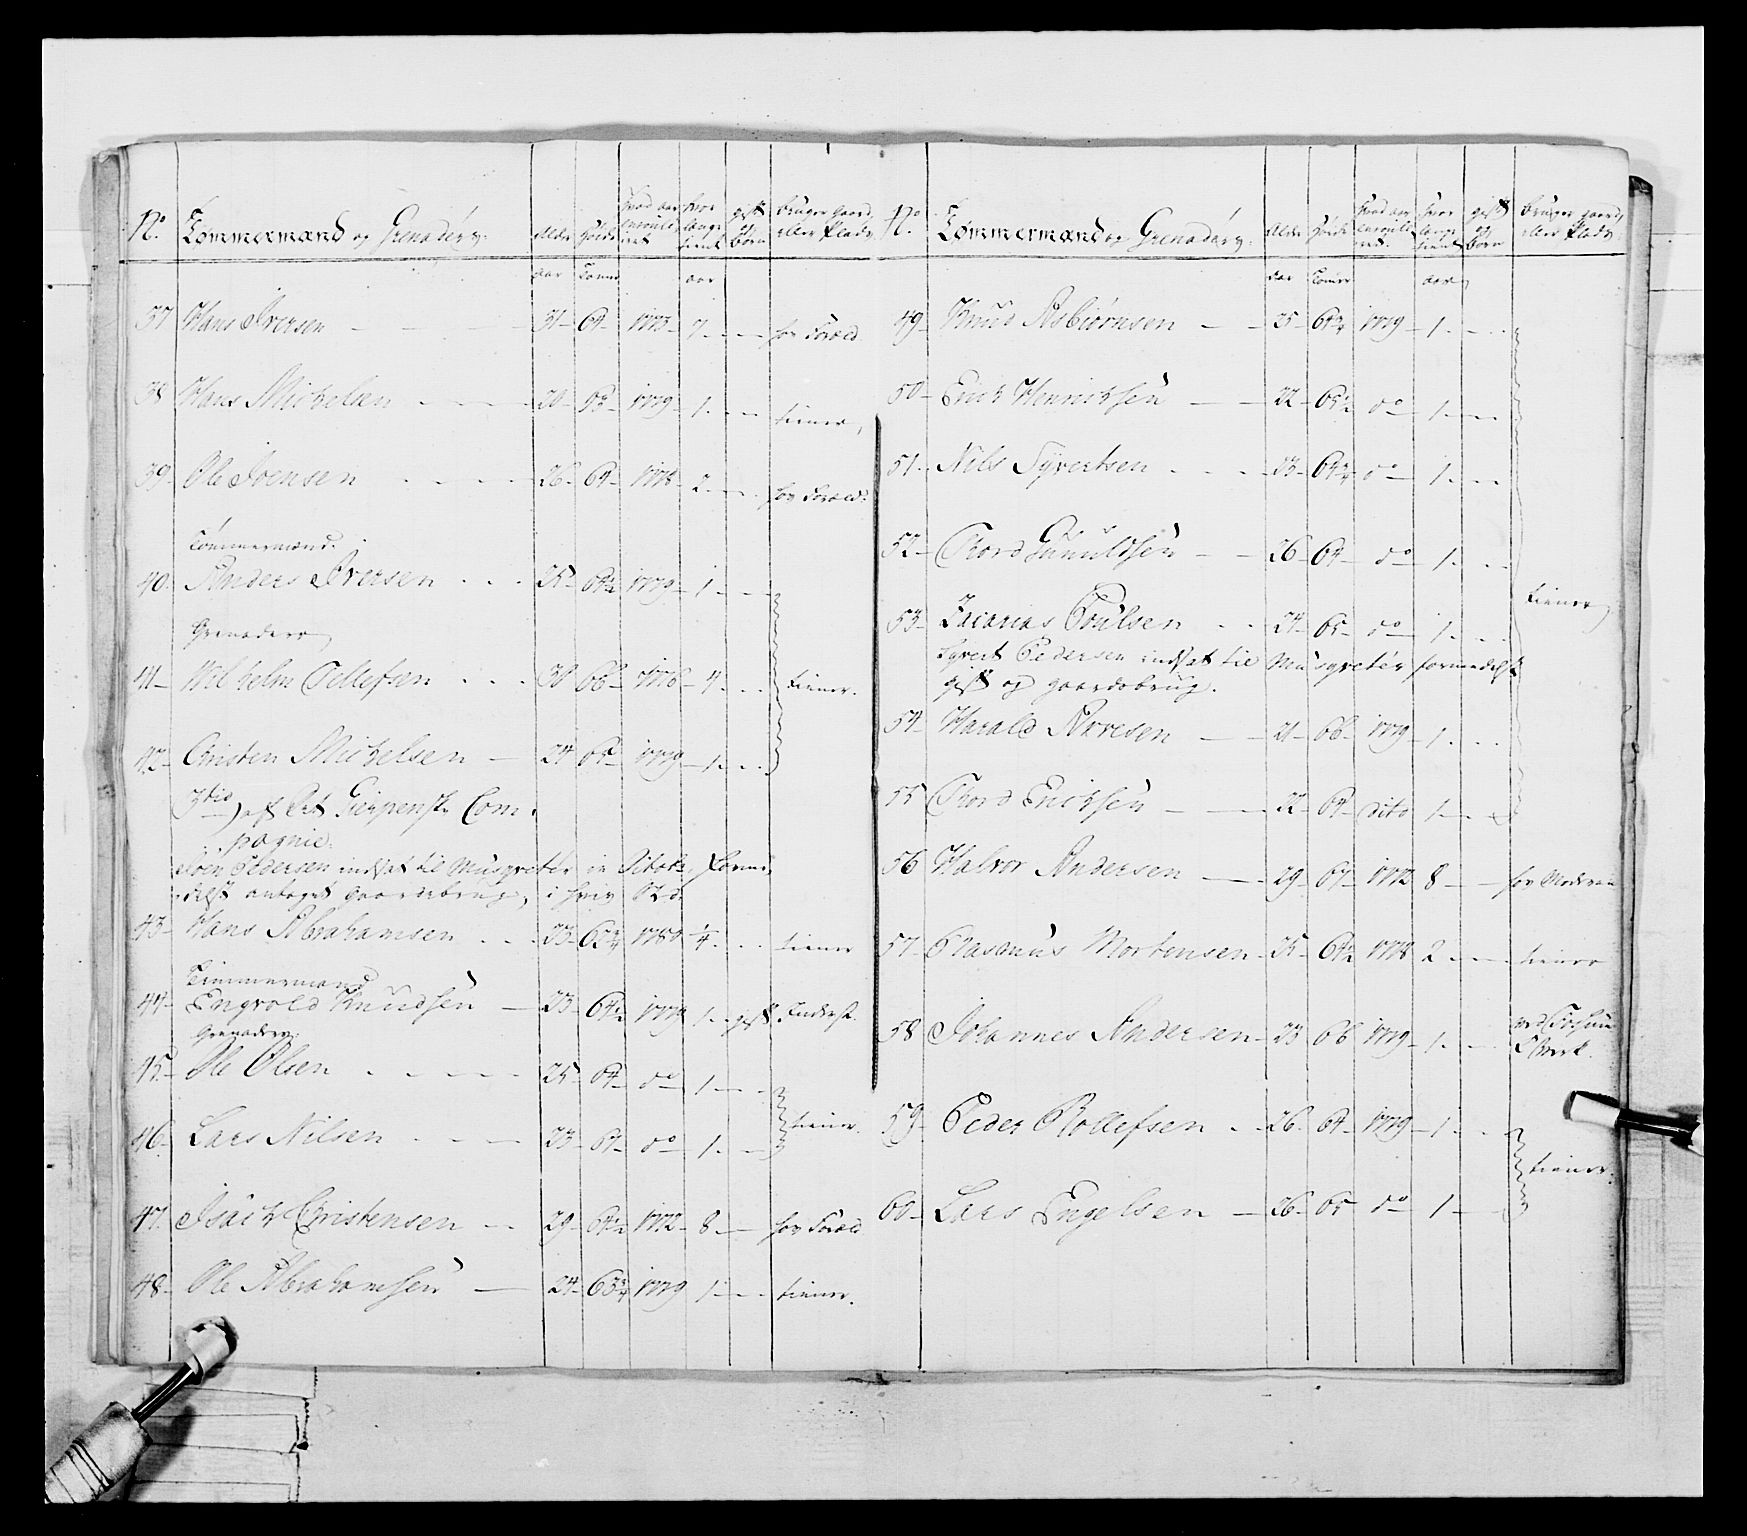 No. Tømmermænd og Grenadery. Alder Høide hvad aar enroulleret hvor længe tient gift og børn bruger gaard eller Plads
aar Tomer aar
37 Hans Iversen 31 64 1773 7 hos Foræld
38 Hans Michelsen 20 1779 1 tiener
39 Ole Joensen 26 64 1778 2 hos Foræld:
Tømmermænd.
40 Anders Iversen 25 64½ 1779 1
Grenaderer
41 Wilhelm Tellefsen 30 66 1776 4 tiener.
42 Christen Michelsen 24 1779 1
3die af Det Gierpenske Com-
pagnie.
Joen Pedersen indsat til Musqueteer
antaget Gaardebrug,
43 Hans Abrahamsen 23 63¾ 1780 ¼ tiener
Timmermænd
44 Engvold Knudsen 23 64½ 1779 1 gift Inderst.
Grenaderer
45 Ole Olsen 25 64 do 1
46 Lars Nilsen 23 64 do 1 tiener.
47 Isaich Christensen 29 64½ 1772 8 hos Foræld
48 Ole Abrahamsen 24 63¾ 1779 1 tiener.
No. Tømmermænd og Grenadery. Alder Høide hvad aar enroulleret. hvor længe tient gift og børn bruger gaard eller Plads
aar Tomer aar
49 Knud Asbiørnsen 25 64¾ 1779 1
50 Erich Henrichsen 22 65½ do 1
51 Nils Syvertsen 23 64¾ do 1
52 Thord Gunuldsen 26 64 do 1
tiener
53 Zacarias Poulsen 24 65 do 1
Syvert Pedersen indsat til Musqueteer formedelst
gift og gaardsbrug.
54 Harald Arvesen 21 66 1779 1
55 Thord Erichsen 22 64 dito 1
56 Halvor Andersen 29 67 1772 8 hos Moderen
57 Rasmus Mortensen 25 64½ 1778 2 tiener
58 Johannes Andersen 23 66 1779 1 ved Fossum
Werk.
59 Peder Rollefsen 26 64 1779 1
tiener.
60 Lars Engelsen 26 65 do 1